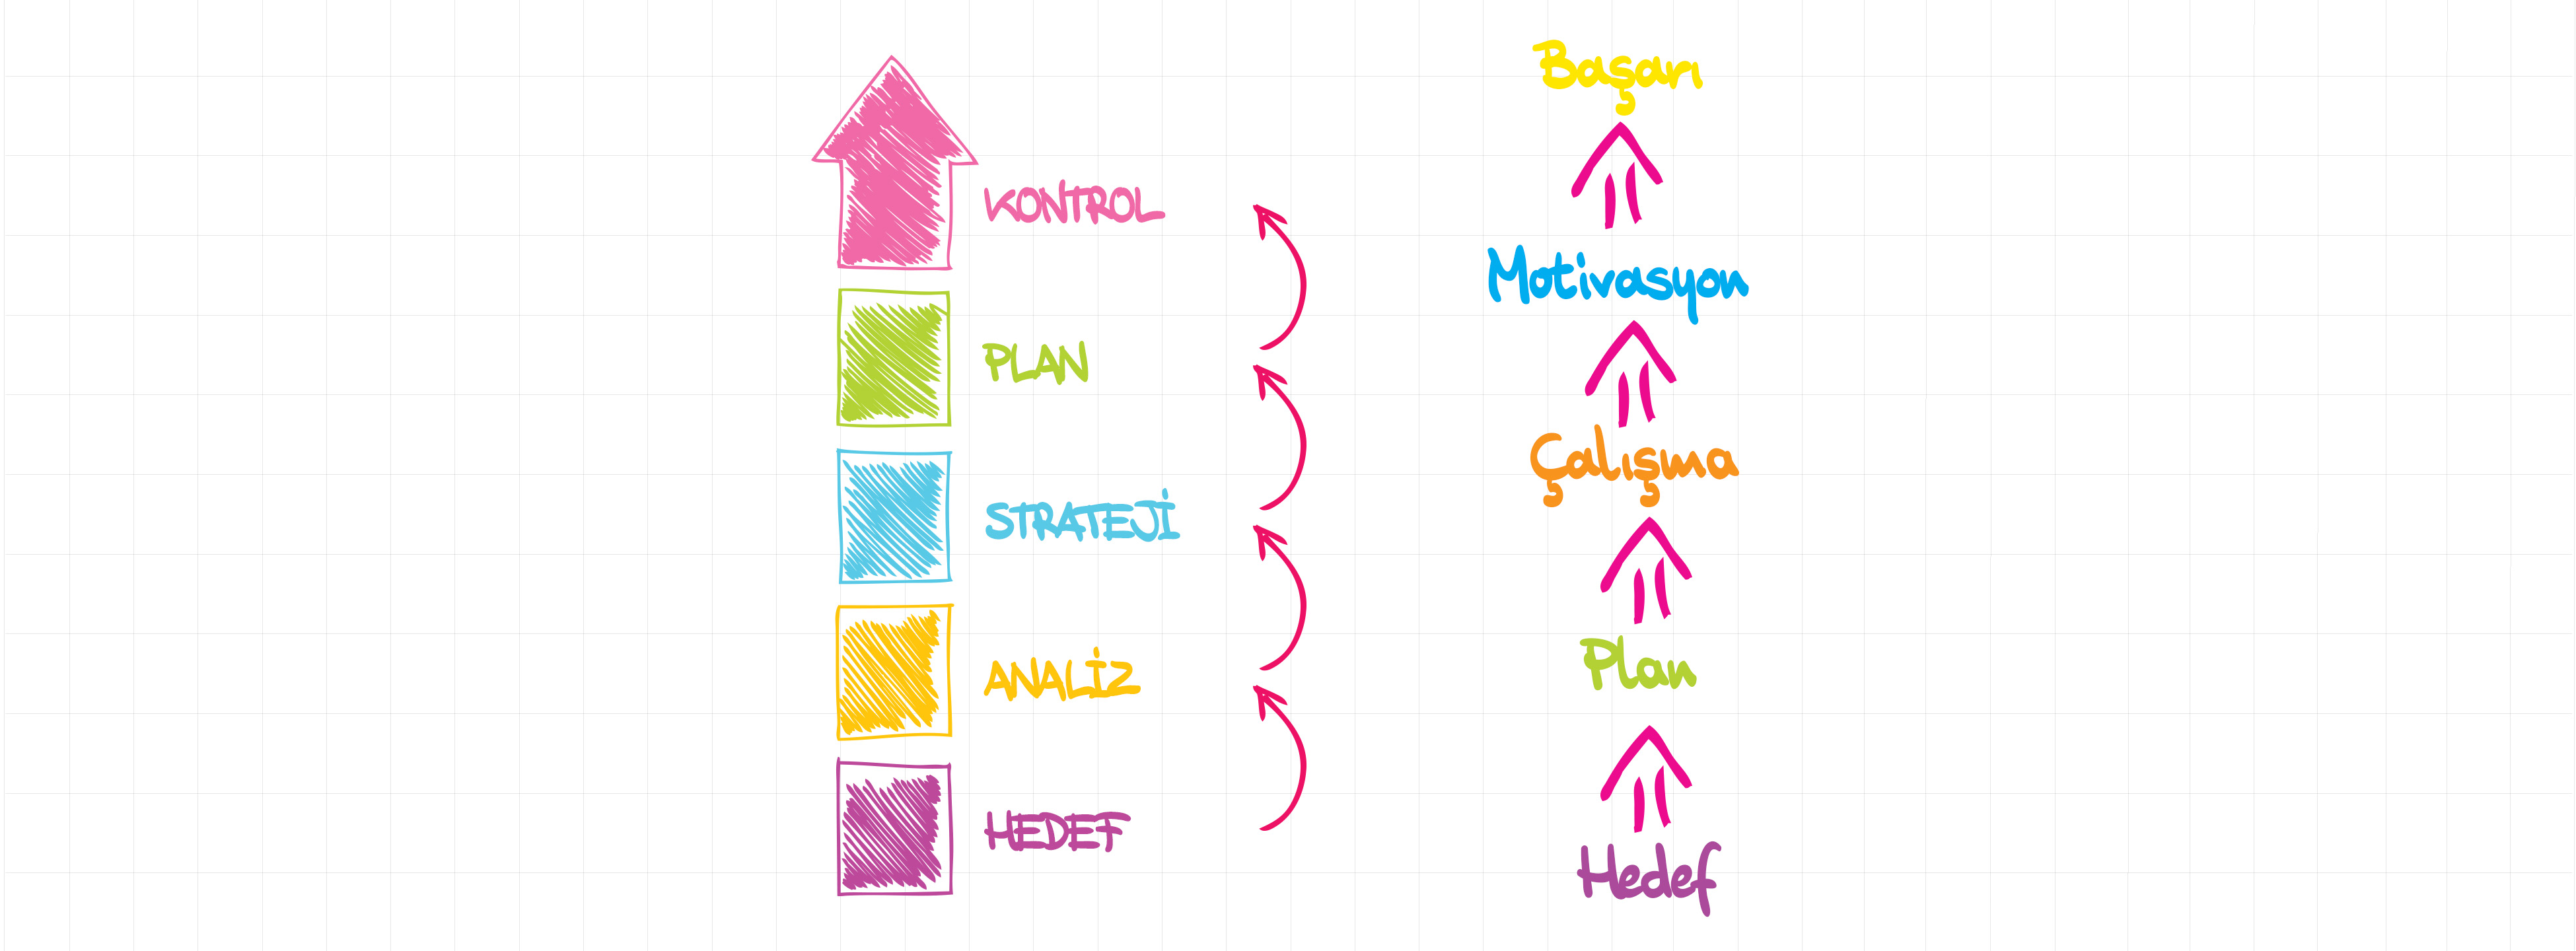 KONTROL
PLAN
STRATEJİ
ANALİZ
HEDEF
Başarı
Motivasyon
Çalışma
Plan
Hedef